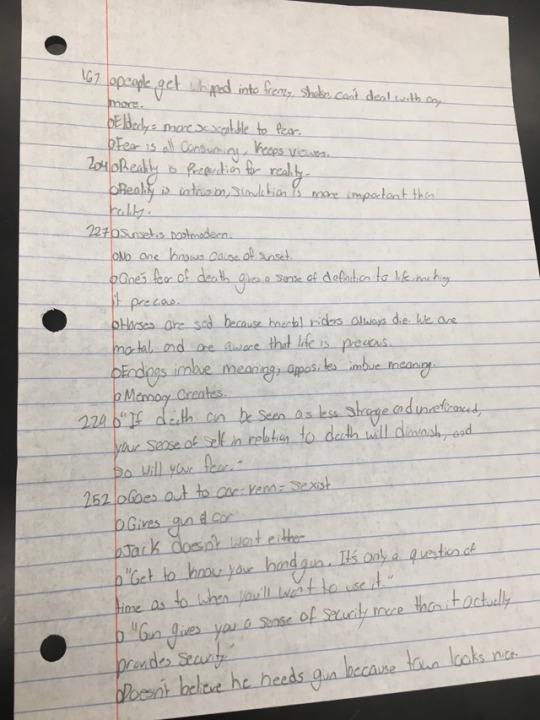 167 o people get whipped into frenzy, she can't deal with any
more.
o Elderly = more sceptible to fear.
o Fear is all consuming, keeps viewer.
204 o Reality is Preparation for reality.
o Reality is intrusion, simulation is more important than
reality.
227 o Sunset is postmodern.
o No one knows cause of sunset.
o One's fear of death gives a sense of definition to life making
it precious.
o Horses are sad because mortal riders always die. We are
mortal and are aware that life is precious.
o Endings imbue meaning, opposites imbue meaning.
o Memory Creates.
229 o "If death can be seen as less strange and unreferenced,
your sense of self in relation to death will diminish, and
so will your fear."
252 o Goes out to car - = sexist
o Gives gun & car
o Jack doesn't want either
o "Get to know your handgun. It's only a question of
time as to when you'll want to use it."
o "Gun gives you a sense of security more than it actually
provides security"
o Doesn't believe he needs gun because town looks nice.